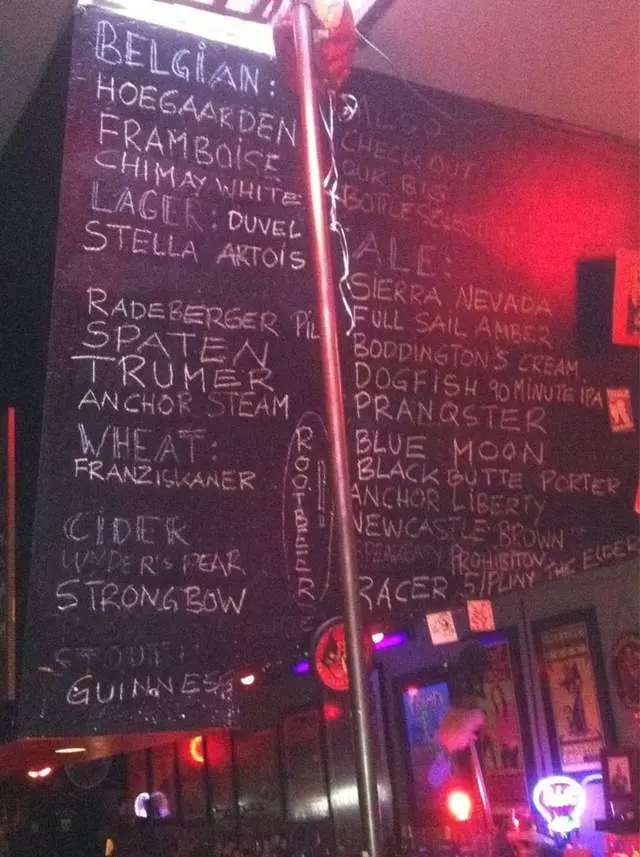 BELGIAN:
HOEGAARDEN
FRAMBOISE
CHIMAY WHITE
LAGER: DUVEL
STELLA ARTOIS
RADEBERGER PIL
SPATEN
TRUMER
ANCHOR STEAM
WHEAT:
FRANZISKANER
CIDER
WYDER'S PEAR
STRONGBOW
STOUT
GUINNESS
ROOTBEER
ALSO
CHECK OUT
OUR BIG
BOTTLE SELECTION
ALE:
SIERRA NEVADA
FULL SAIL AMBER
BODDINGTON'S CREAM
DOGFISH 90 MINUTE IPA
PRANQSTER
BLUE MOON
BLACK BUTTE PORTER
ANCHOR LIBERTY
NEWCASTLE BROWN
SPEAKEASY PROHIBITON
RACER 5/PLINY THE ELDER